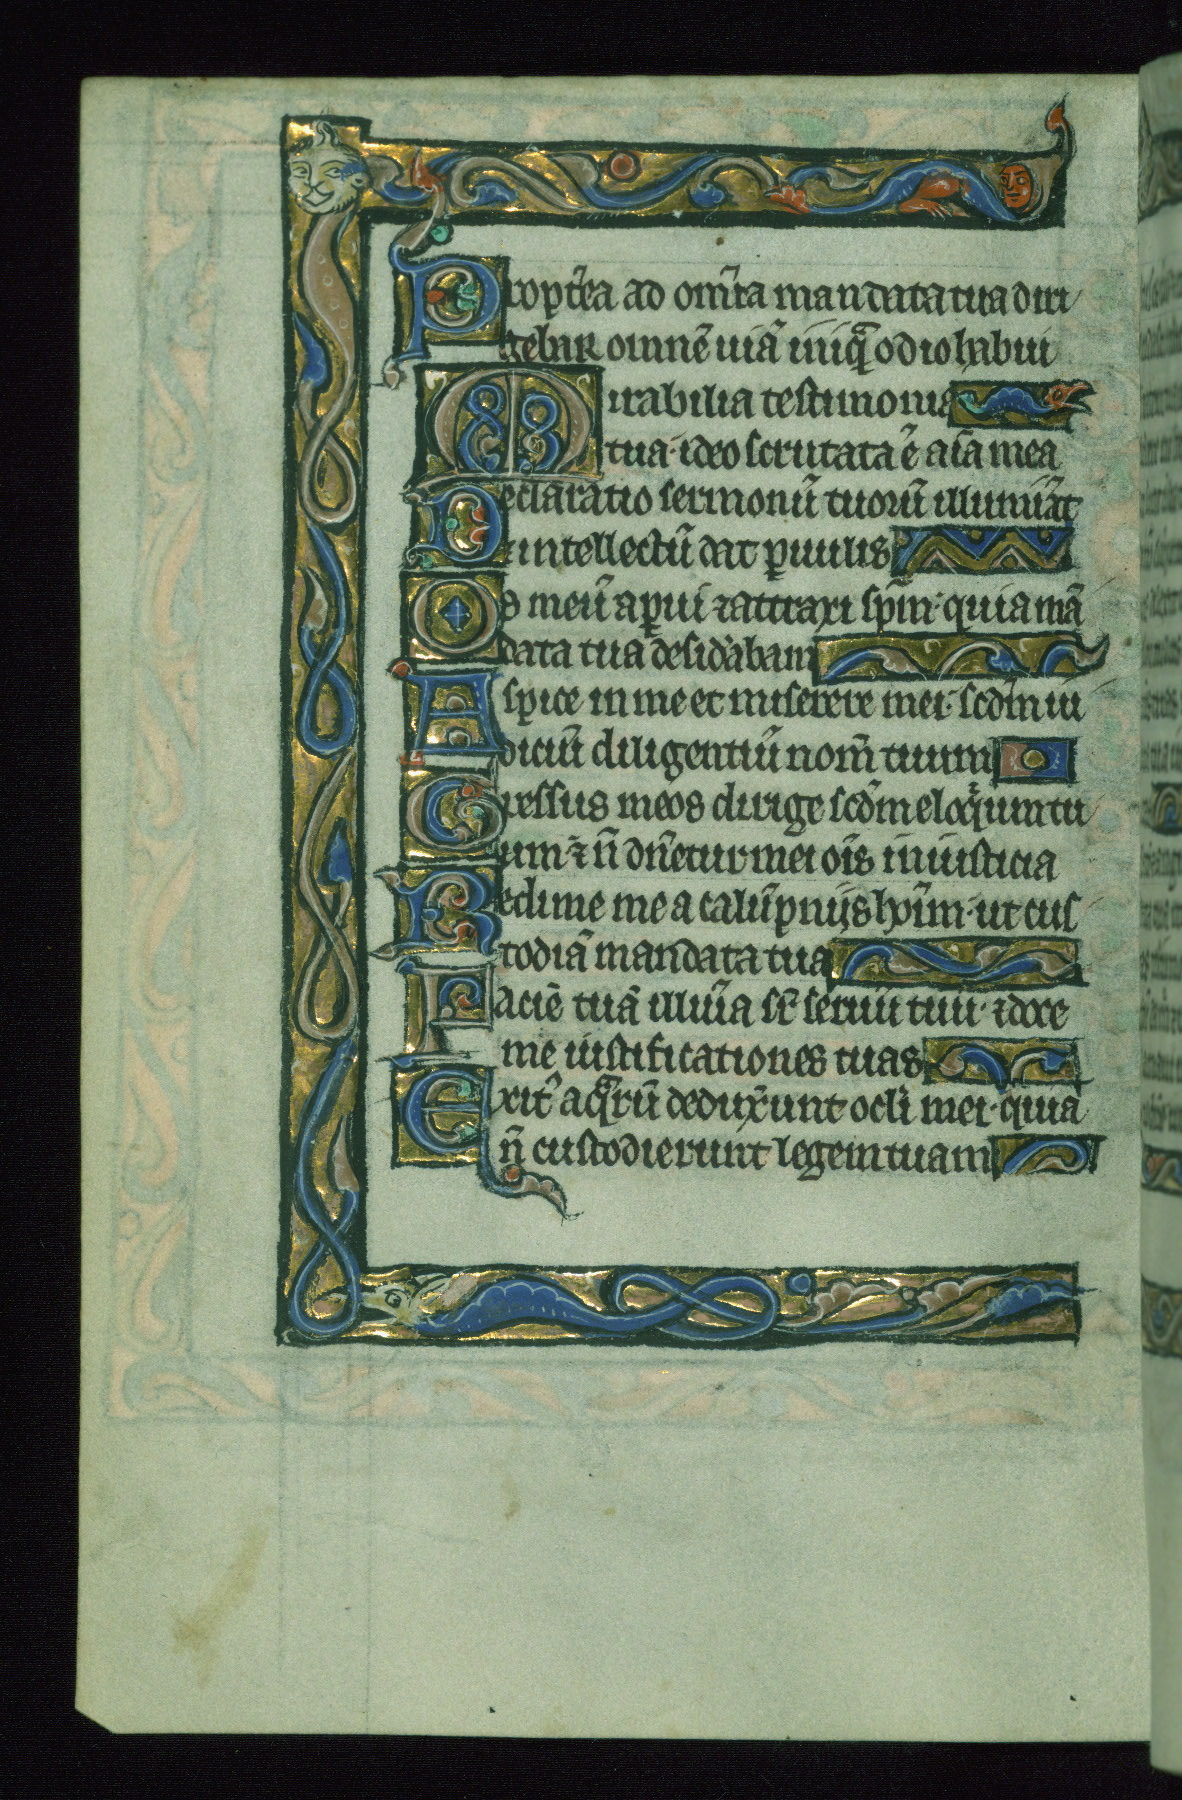 Propt̾ea ad om̅ia mandata tua diri
gebar omne̅ uia̅ iniqͣ odio habui
Mirabilia testimonia
tua· ideo scrutata e̅ ai̅a mea
Declaratio sermonu̅ tuoru̅ illumi̅at
⁊ intellectu̅ dat ꝑuulis
Os meu̅ aꝑui ⁊ attraxi sp̅m· quia ma̅
data tua desid̾abam
Aspice in me et miserere mei· scd̅m iu
diciu̅ diligentiu̅ nom̅ tuum
Gressus meos dirige scd̅m eloqͥum tu
um· ⁊ n̅ dn̅etur mei oi̅s iniusticia
Redime me a calu̅pnijs ho̅im· ut cus
todia̅ mandata tua
Facie̅ tua̅ illui̅a sr̅ seruu̅ tuu̅· ⁊ doce
me iustificationes tuas
Exit᷒ aqͣru̅ dedux̾unt ocl̅i mei· quia
n̅ custodierunt legem tuam